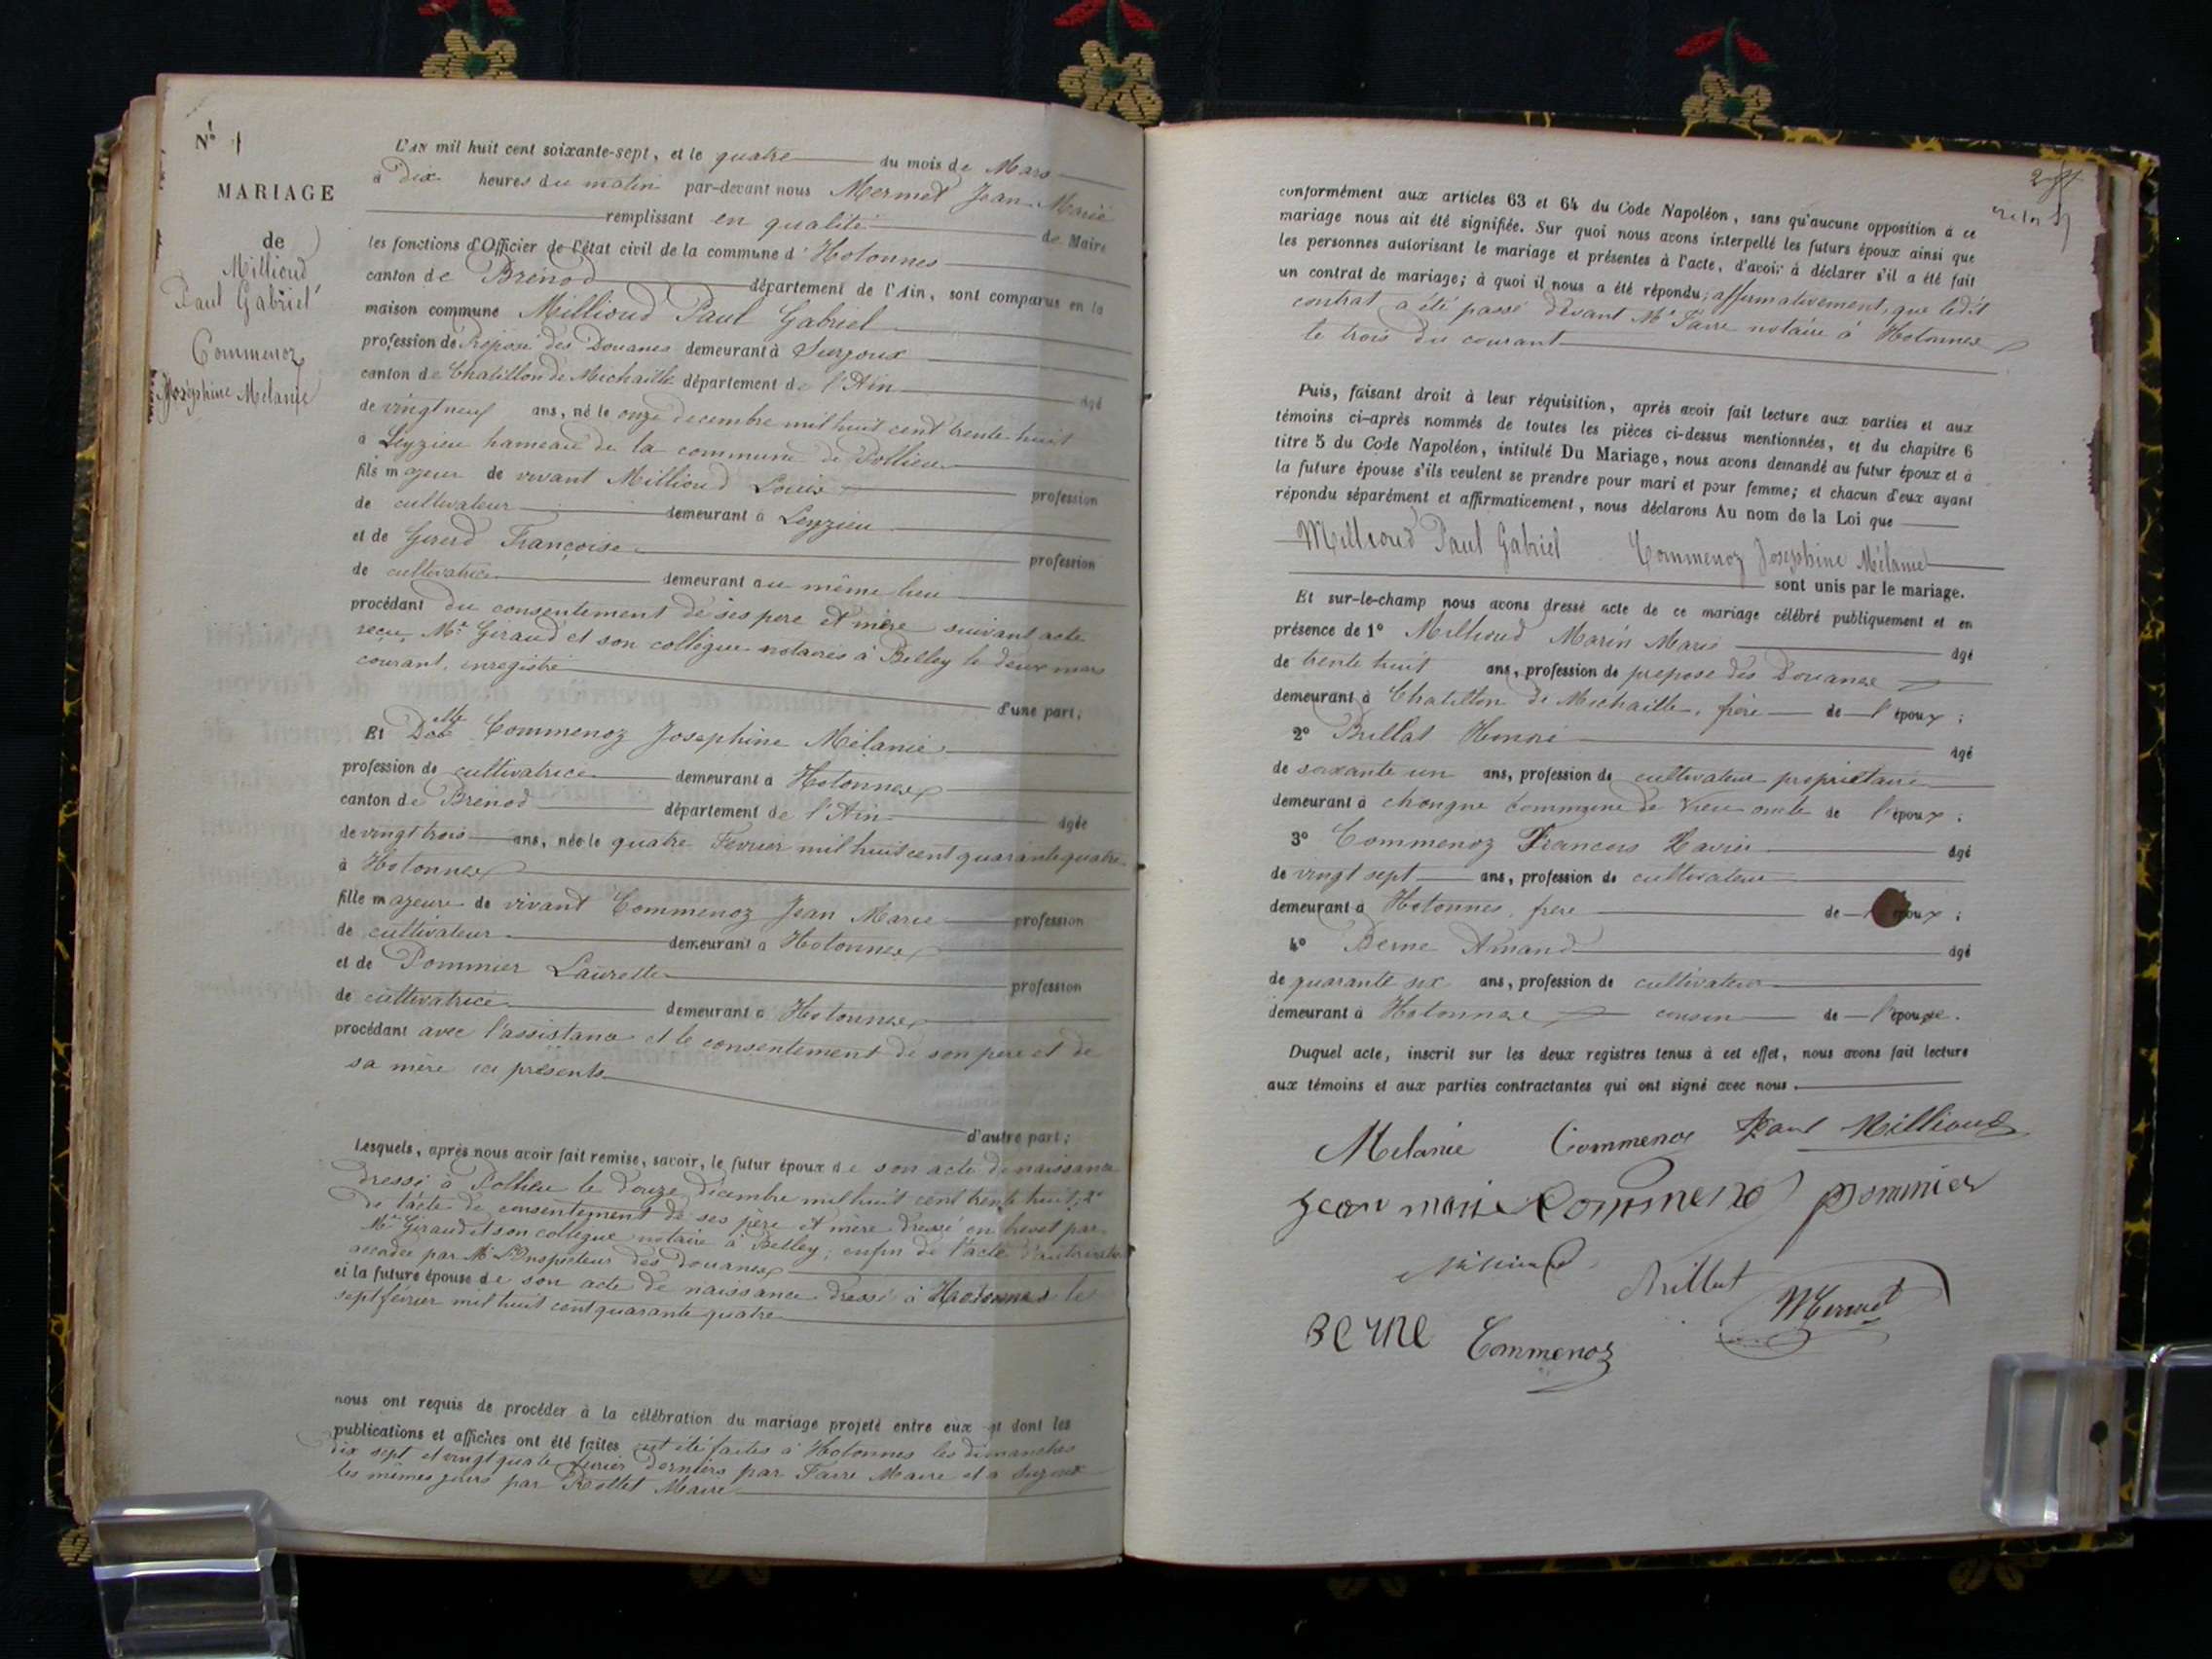 N° 1
MARIAGE
de
Millioud
Paul Gabriel
Commenoz
Joséphine Melanie
L'AN mil huit cent soixante-sept, et le quatre du mois de Mars
à Dix heures du matin par-devant nous Mermet Jean Marie
remplissant en qualité de Maire
les fonctions d'Officier de l'état civil de la commune d' Hotonnes
canton de Brénod département de l'Ain, sont comparus en la
maison commune Millioud Paul Gabriel
profession de Préposé des Douanes demeurant à Surjoux
canton de Chatillon de Michaille département de l'Ain âgé
de vingt neuf ans, né le onze decembre mil huit cent trente huit
à Leyzieu hameau de la commune de Pollieu
fils majeur de vivant Millioud Louis profession
de cultivateur demeurant à Leyzieu
et de Girerd Françoise profession
de cultivatrice demeurant au même lieu
procédant du consentement de ses pere et mère suivant acte
reçu Mr Giraud et son collègue notaires à Belley le deux mars
courant, enregistré
d'une part;
Et Dlle Commenoz Josephine Mélanie
profession de cultivatrice demeurant à Hotonnes
canton de Brenod département de l'Ain âgée
de vingt trois ans, née le quatre Fevrier mil huit cent quarante quatre
à Hotonnes
fille majeure de vivant Commenoz Jean Marie profession
de cultivateur demeurant à Hotonnes
et de Pommier Laurette profession
de cultivatrice demeurant à Hotonnes
procédant avec l'assistance et le consentement de son père et de
sa mère ici présents
d'autre part;
Lesquels, après nous avoir fait remise, savoir, le futur époux de son acte de naissance
dressé à Pollieu le douze décembre mil huit cent trente huit, 2°
de l'acte de consentement de ses père et mère dressé en brevet par
Mr Giraud et son collègue notaire à Belley; enfin de l'acte
accordée par Mr l'Inspecteur des Douanes
et la future épouse de son acte de naissance dressé à Hotonnes le
sept fevrier mil huit cent quarante quatre
nous ont requis de procéder à la célébration du mariage projeté entre eux et dont les
publications et affiches ont été faites ont été faites à Hotonnes les dimanches
dix sept et vingt quatre fevrier derniers par Favre Maire et à Surjoux
les mêmes jours par Rollet Maire
conformément aux articles 63 et 64 du Code Napoléon, sans qu'aucune opposition à ce
mariage nous ait été signifiée. Sur quoi nous avons interpellé les futurs époux ainsi que
les personnes autorisant le mariage et présentes à l'acte, d'avoir à déclarer s'il a été fait
un contrat de mariage; à quoi il nous a été répondu, affirmativement, que ledit
contrat a été passé devant Mr Favre notaire à Hotonnes
le trois du courant
Puis, faisant droit à leur réquisition, après avoir fait lecture aux parties et aux
témoins ci-après nommés de toutes les pièces ci-dessus mentionnées, et du chapitre 6
titre 5 du Code Napoléon, intitulé Du Mariage, nous avons demandé au futur époux et à
la future épouse s'ils veulent se prendre pour mari et pour femme; et chacun d'eux ayant
répondu séparément et affirmativement, nous déclarons Au nom de la Loi que
Millioud Paul Gabriel Commenoz Josephine Mélanie
sont unis par le mariage.
Et sur-le-champ nous avons dressé acte de ce mariage célébré publiquement et en
présence de 1° Millioud Marin Marie âgé
de trente huit ans, profession de préposé des Douanes
demeurant à Chatillon de Michaille, frère de l'époux;
2° Brillat Honoré âgé
de soixante un ans, profession de cultivateur propriétaire
demeurant à chongne commune de Vieu oncle de l'époux;
3° Commenoz Francois Xavier âgé
de vingt sept ans, profession de cultivateur
demeurant à Hotonnes, frere de l'époux;
4° Berne Amand âgé
de quarante six ans, profession de cultivateur
demeurant à Hotonnes cousin de l'épouse.
Duquel acte, inscrit sur les deux registres tenus à cet effet, nous avons fait lecture
aux témoins et aux parties contractantes qui ont signé avec nous.
Melanie Commenoz Paul Millioud
Jean marie Commenoz pommier
Brillat Mermet
BERNE Commenoz